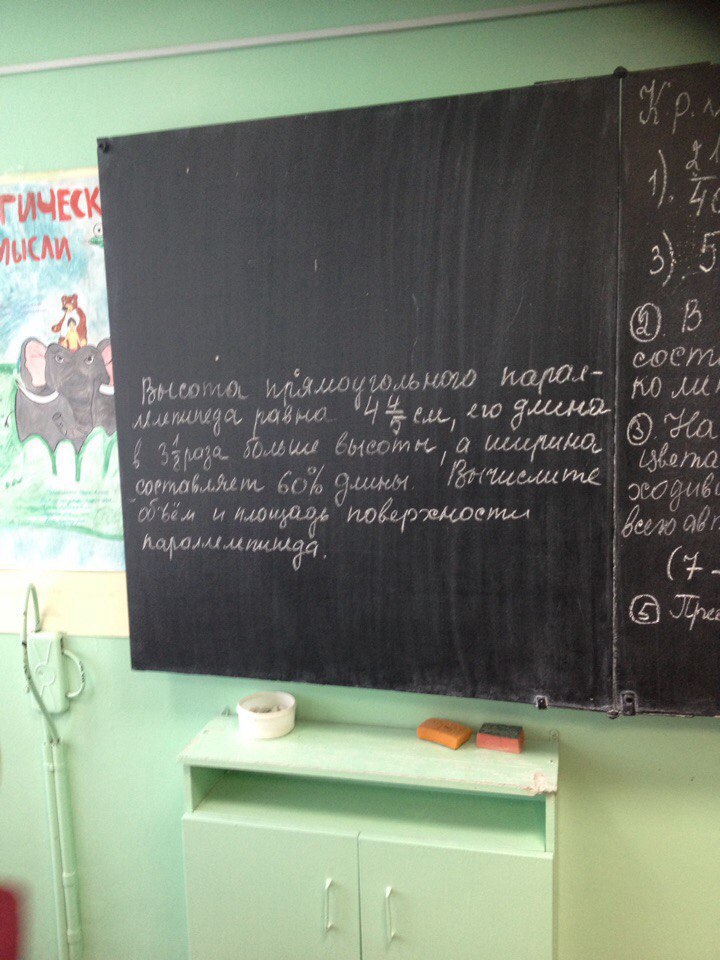 ГИЧЕСК
МЫСЛИ
Высота прямоугольного парал-
лелепипеда равна 4 4/5 см, его длина
в 3 1/8 раза больше высоты, а ширина
составляет 60% длины. Вычислите
объём и площадь поверхности
параллелепипеда.
Кр.
1).
3) 5
②. В
сост
коли
③. На
цвета
ходив
всего авт
(7 -
⑤ Пре